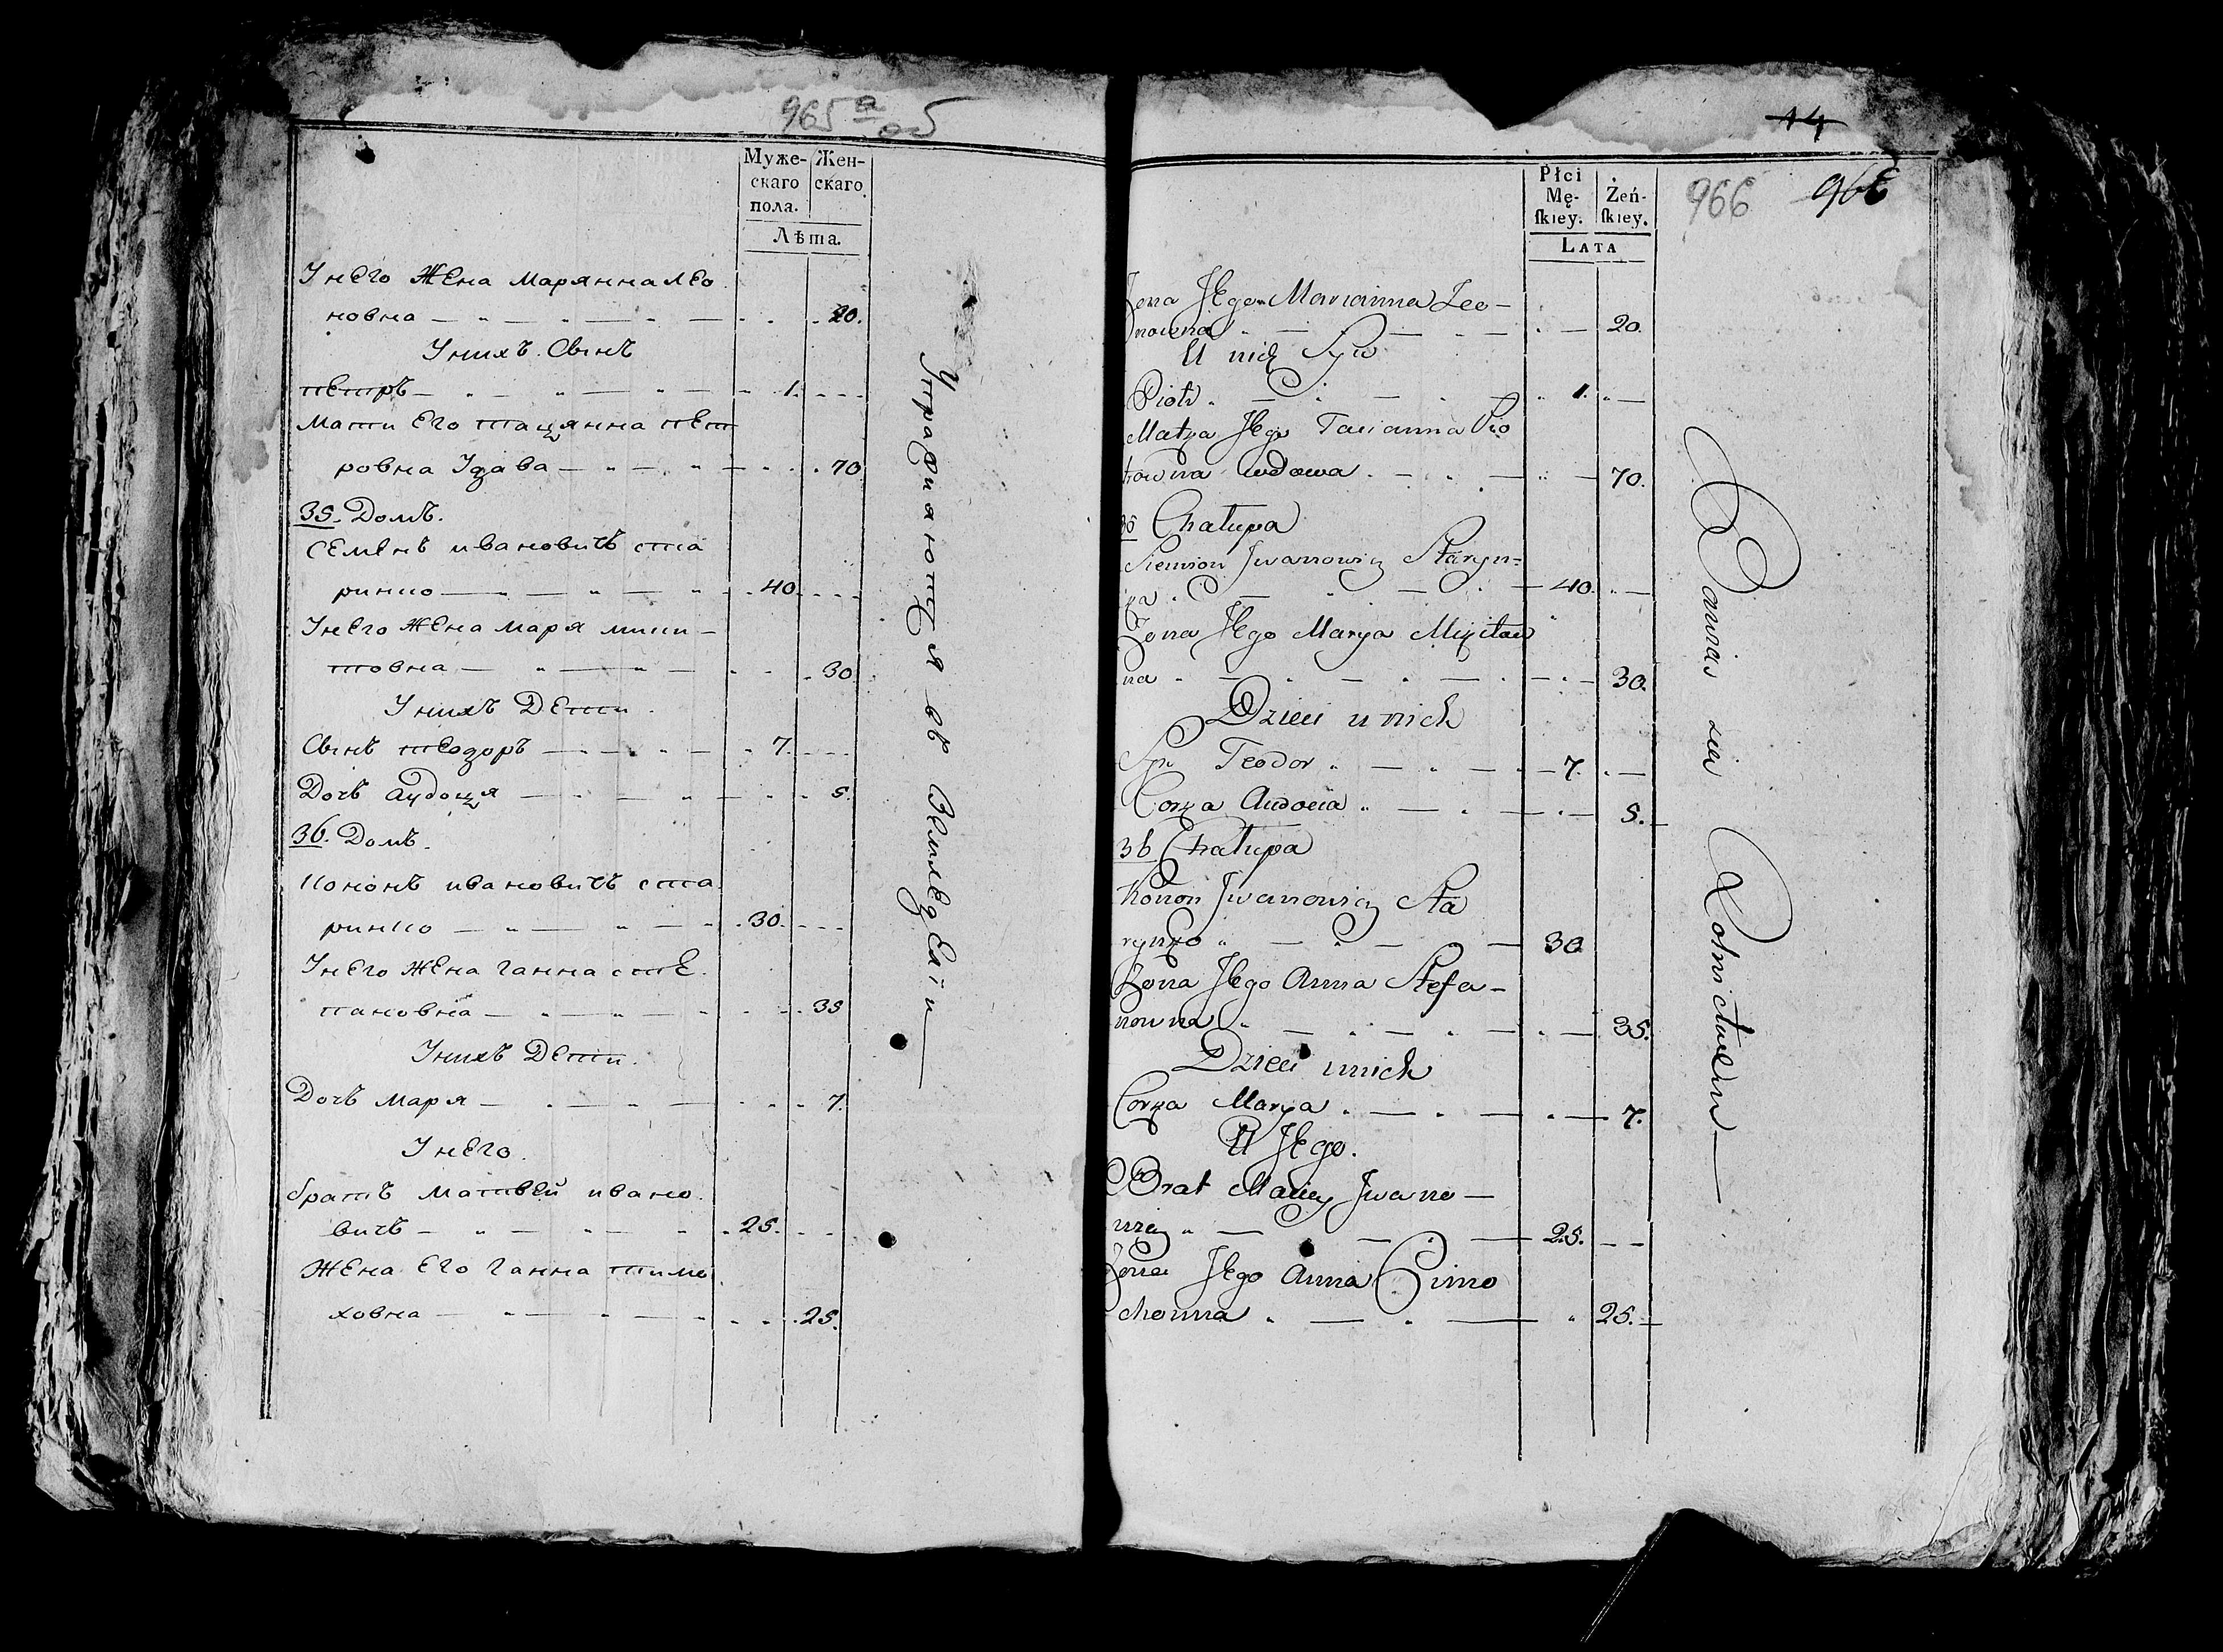 965 а об
Муже-
скаго
пола.
Жен-
скаго
Лѣта.
У него Жена Марянна Лео
новна 20.
У нихъ Сынъ
Петръ 1.
Мати Его Тацянна Пет
ровна Удава 70
35. Домъ.
Семенъ Ивановичъ Ста
ринко 40
У него Жена Маря Мики-
товна 30
У нихъ Дети
Сынъ Теодоръ 7.
Дочъ Аудоця 5.
36. Домъ.
Кононъ Ивановичъ Ста
ринко 30.
У него Жена Ганна Сте
пановна 35
У нихъ Дети.
Дочъ Маря 7.
У него.
братъ Матвей Ивано
вичъ 25.
Жена Его Ганна Тимо
ховна 25.
Упражняютця въ Земледелїи
14
966 966
Płci
Mę-
ſkiey.
Żeń-
ſkiey.
LATA
Zona Jego Marianna Leo-
nowna 20.
U nich Syn
Piotr 1.
Matka Jego Tacianna Pio
trowna wdowa 70.
35 Chałupa
Siemion Jwanowicz Staryn=
ka 40.
Zona Jego Marya Mikitow
na 30.
Dzieci u nich
Syn Teodor 7.
Corka Audocia 5.
36 Chałupa
Konon Jwanowicz Sta
rynko 30
Zona Jego Anna Stefa-
nowna 35.
Dzieci u nich
Corka Marya 7.
U Jego.
Brat Maciey Jwano-
wicz 25.
Zona Jego Anna Cimo
chowna 25.
Bawią się Rolnictwem